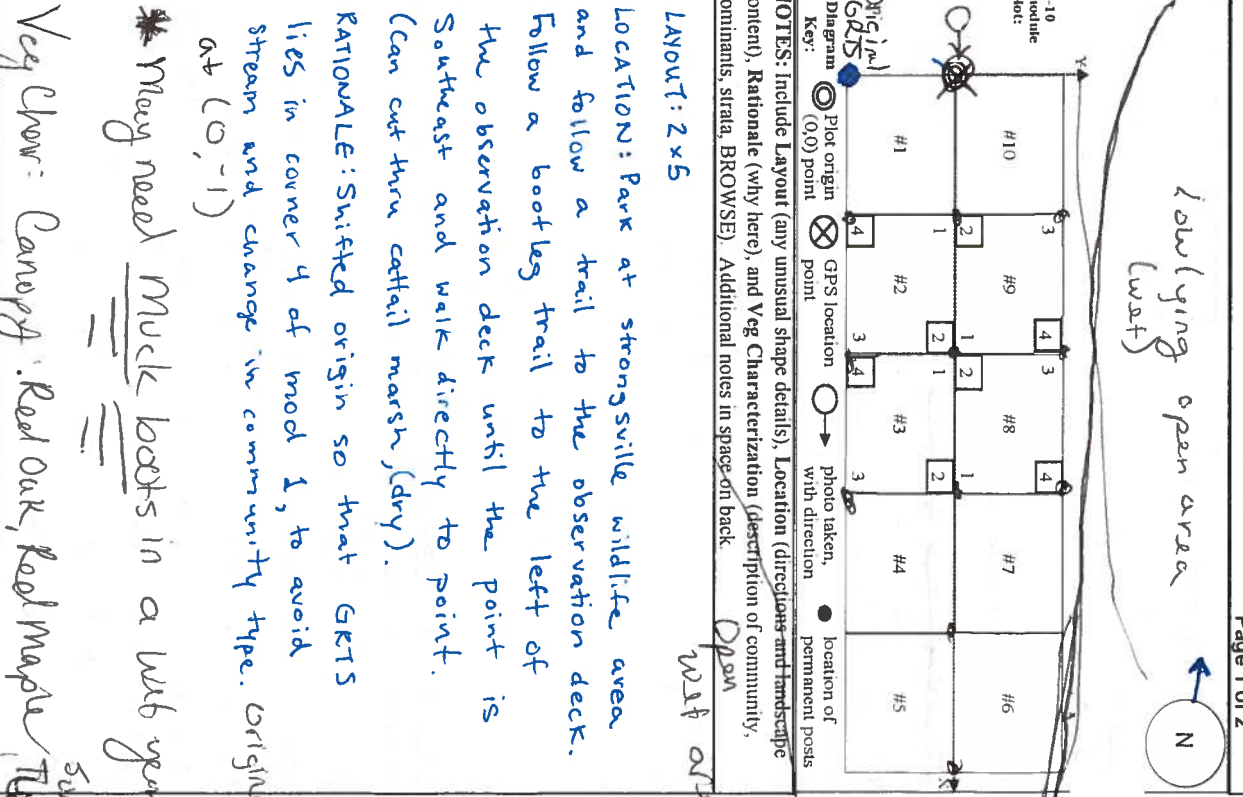 Page 1 of 2
N
lowlying open area
(wet)
-10
module
Y
X
#10
#9
#8
#7
#6
#1
#2
#3
#4
#5
3
4
3
4
2
1
2
1
1
2
1
2
4
3
4
3
original
GRTS
Diagram Key:
Plot origin (0,0) point
GPS location point
photo taken, with direction
location of permanent posts
NOTES: Include Layout (any unusual shape details), Location (directions and landscape
ontent), Rationale (why here), and Veg Characterization (description of community,
ominants, strata, BROWSE). Additional notes in space on back.
Open
wet
LAYOUT: 2x5
LOCATION: Park at strongsville wildlife area
and follow a trail to the observation deck.
Follow a bootleg trail to the left of
the observation deck until the point is
Southeast and walk directly to point.
(can cut thru cattail marsh, (dry).
RATIONALE: Shifted origin so that GRTS
lies in corner 4 of mod 1, to avoid
stream and change in community type. Origin
at (0,-1)
* May need muck boots in a wet year
Veg Char: Canopy: Red Oak, Red Maple